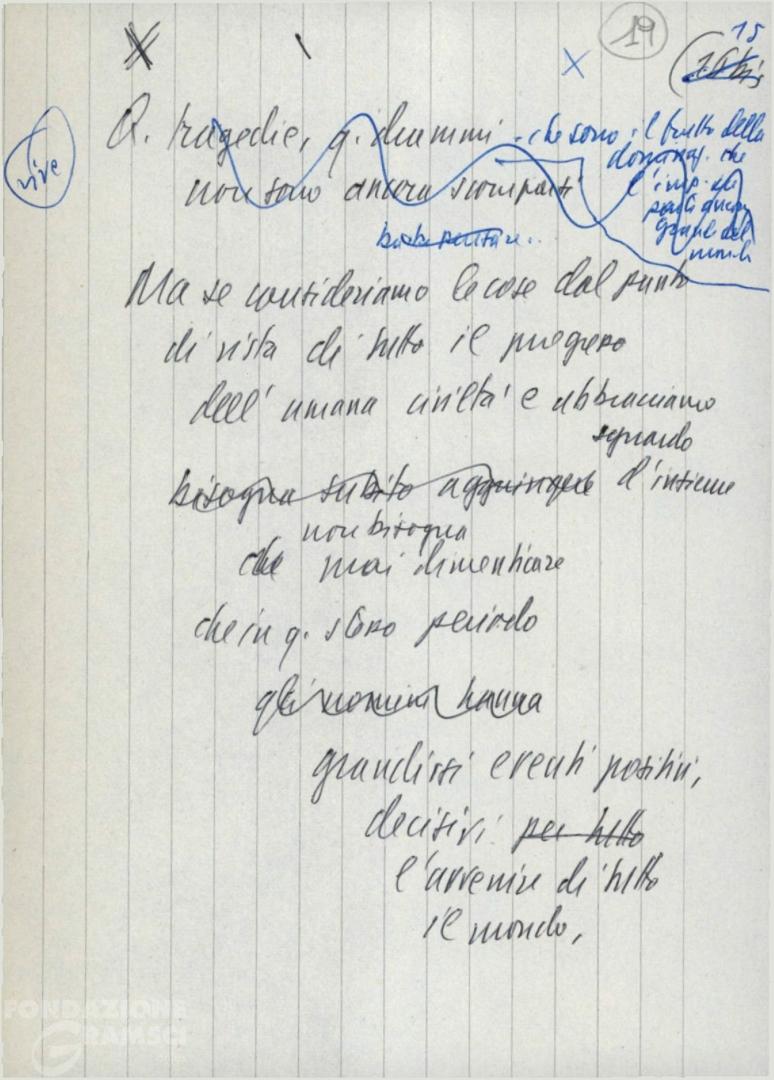 19
15
15 bis
X
vive
Q. tragedie, q. drammi - che sono il frutto della
dominaz. che
l'imp.
ancora
grande del
mondo
non sono ancora scomparsi
basta pensare..
Ma se consideriamo le cose dal punto
di vista di tutto il progresso
dell'umana civiltà e abbracciamo
sguardo
bisogna subito aggiungere d'insieme
non bisogna
che mai dimenticare
che in q. stesso periodo
gli uomini hanno
grandissi eventi positivi,
decisivi per tutto
l'avvenire di tutto
il mondo,
FONDAZIONE
GRAMSCI